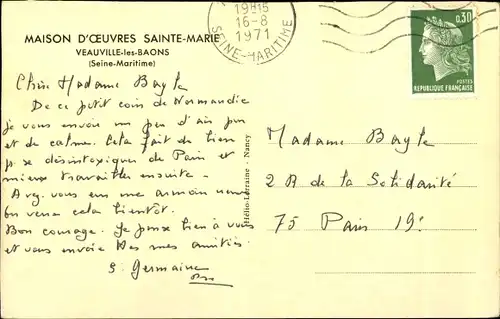 MAISON D'ŒUVRES SAINTE-MARIE
VEAUVILLE-les-BAONS
(Seine-Maritime)
19H15
16-8
1971
SEINE-MARITIME
0,30
POSTES
REPUBLIQUE FRANÇAISE
Chère Madame Bayle
De ce petit coin de Normandie
je vous envoie un peu d'air pur
et de calme. Cela fait du bien
p. se désintoxiquer de Paris et
mieux travailler ensuite.
vous
cela bientôt.
Bon courage. Je pense bien à vous
et vous envoie mes amitiés.
S. Germaine
Hélio-Lorraine - Nancy
Madame Bayle
2 R de la Solidarité
75 Paris 19e